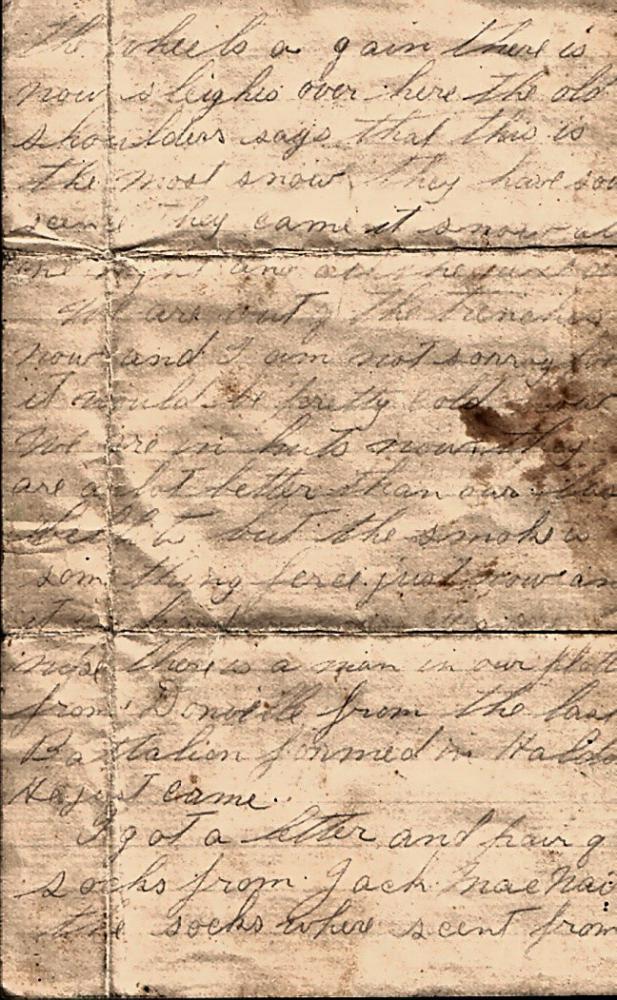 the wheels a gain there is
now sleighs over here the old
shoulders says that this is
the most snow they have
scence They came it snow
the night and
We are out of the trenches
now and I am not sorry for
it would be pretty cold now
We are in huts now they
are a lot better than our
but the smoke is
som thing ferce just now an
it
nose there is a man in our
from Donville from the last
Battalion formed in
He just came.
I got a letter and pair of
socks from Jack Mac
the socks where scent from